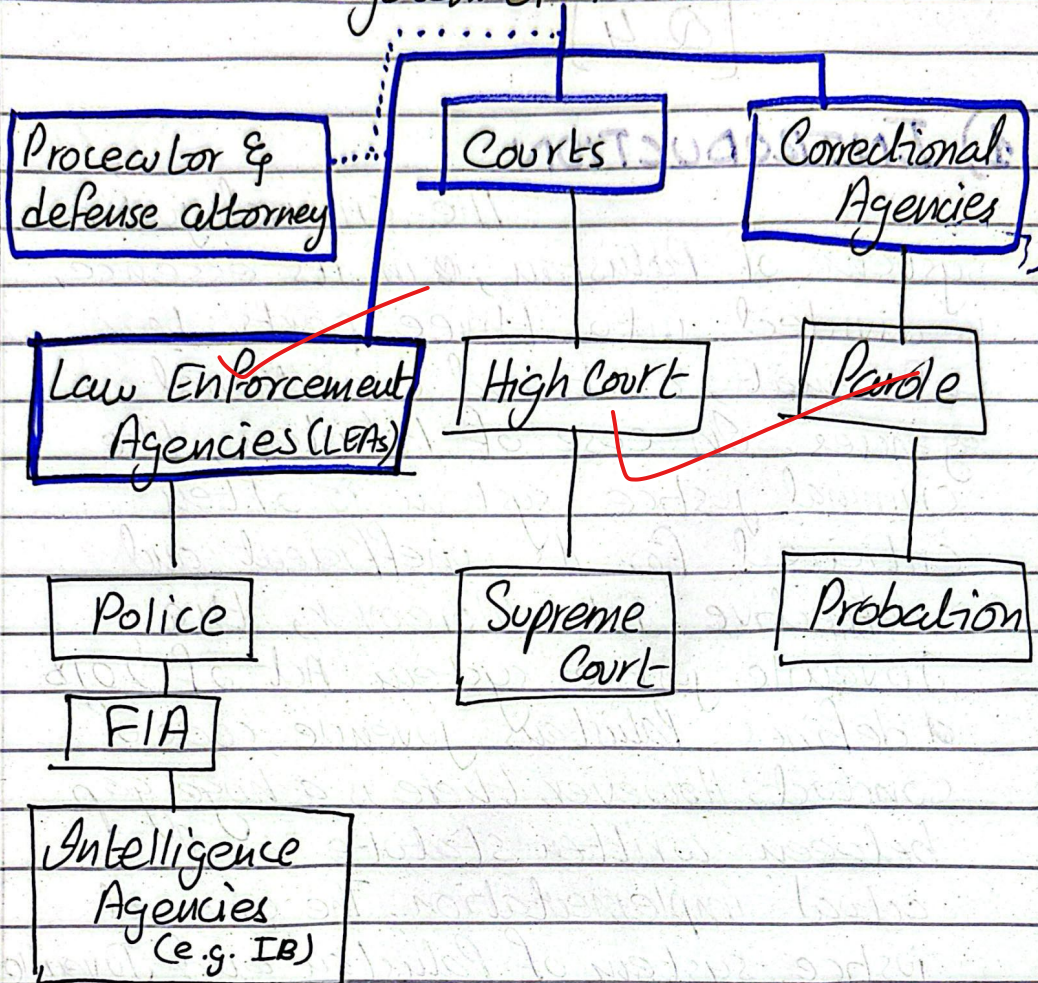 Procecutor &
defense attorney
Courts
Correctional
Agencies
Law Enforcement
Agencies (LEAs)
High Court
Parole
Police
Supreme
Court
Probation
FIA
Intelligence
Agencies
(e.g. IB)